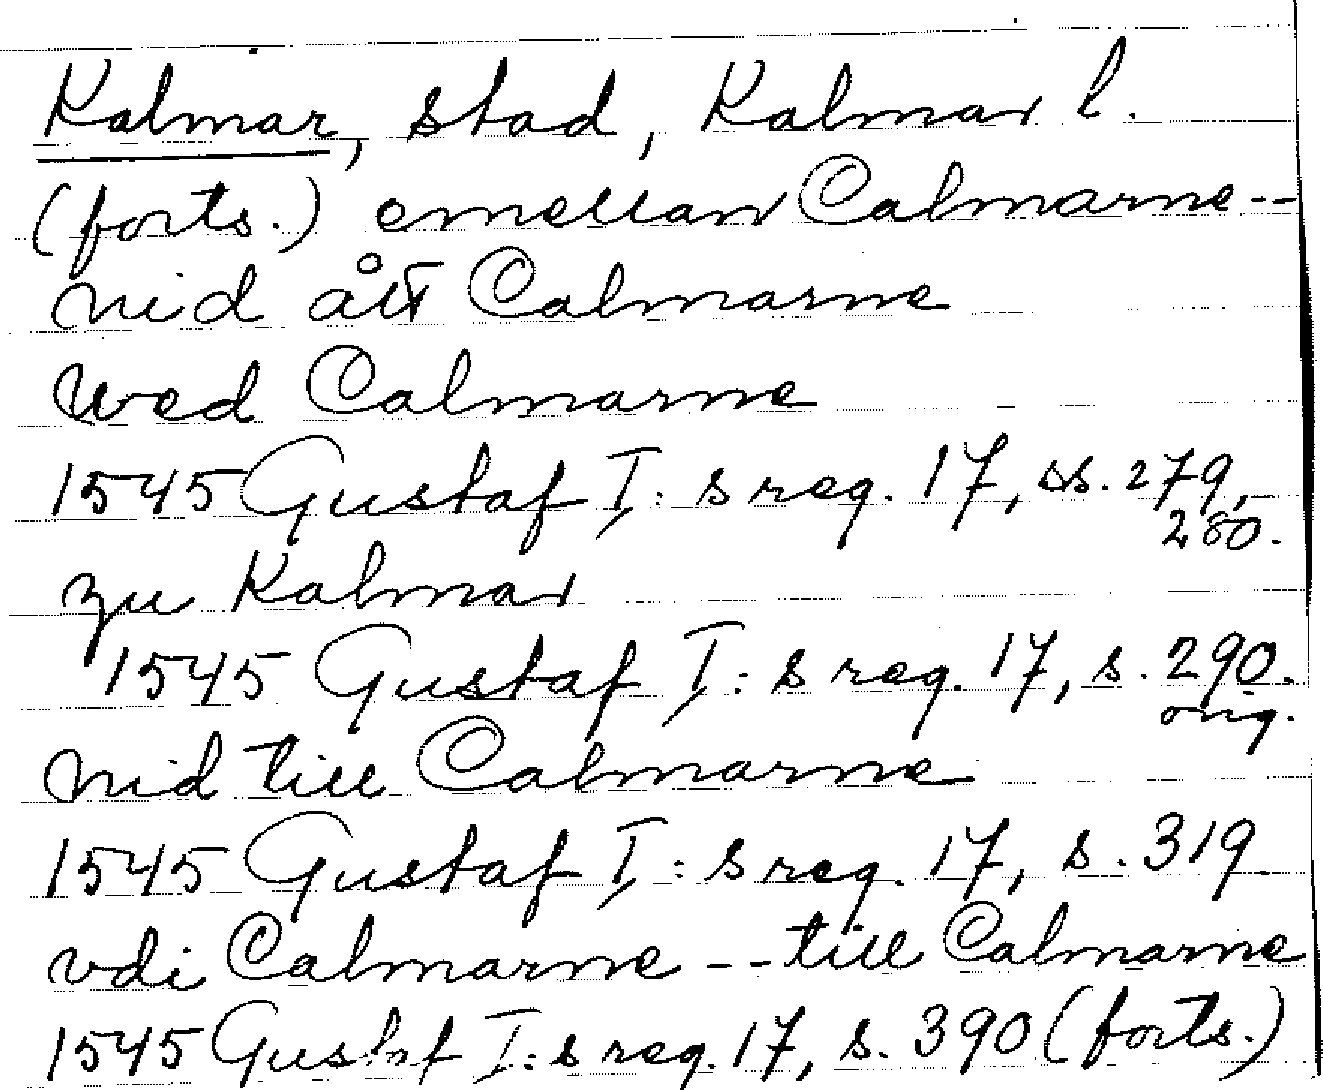 Kalmar, stad, Kalmar l.
(forts.) emellan Calmarne--
nid ått Calmarne
wed Calmarne
1545 Gustaf I:s reg. 17, ss. 279,
280.
zu Kalmar
1545 Gustaf I:s reg. 17, s. 290.
orig.
nid till Calmarne
1545 Gustaf I:s reg. 17, s. 319
vdi Calmarne -- till Calmarne
1545 Gustaf I:s reg. 17, s. 390 (forts.)